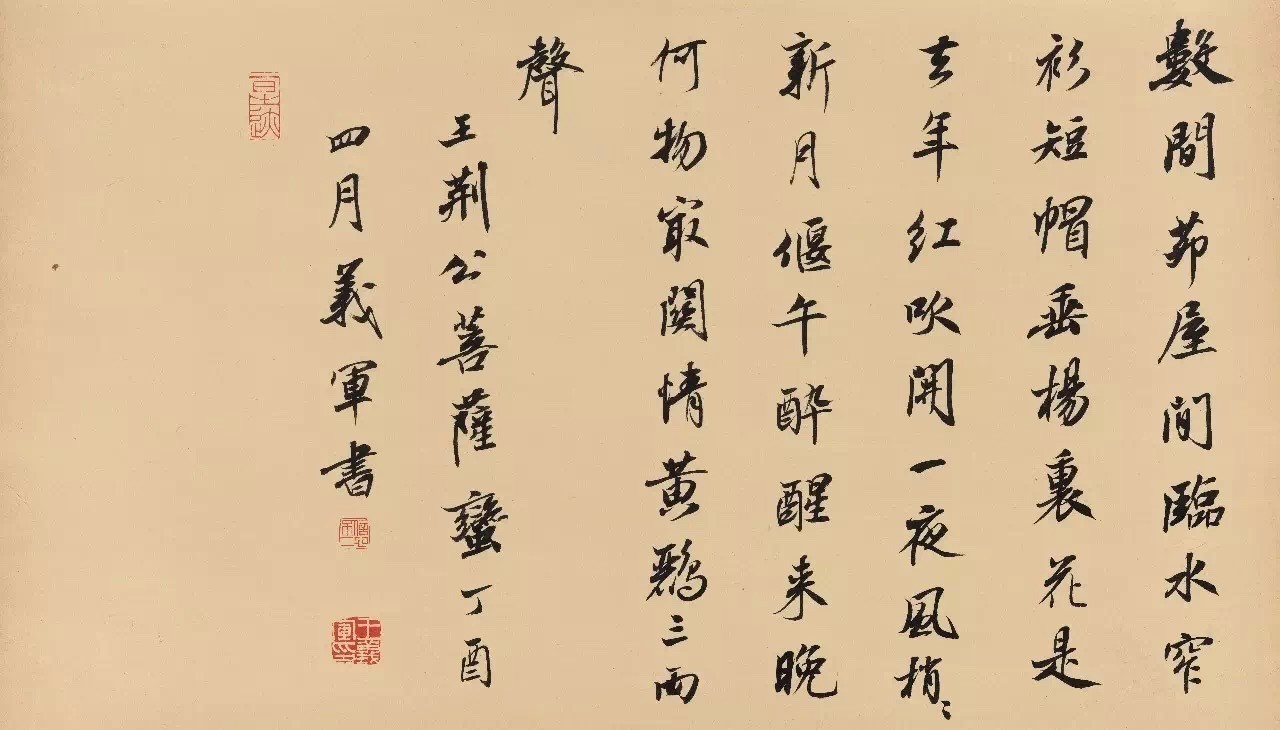 數間茆屋閒臨水窄
衫短帽垂楊裏花是
去年紅吹開一夜風梢〻
新月偃午醉醒来晚
何物冣關情黄鸝三兩
聲
王荊公菩薩蠻丁酉
四月義軍書
王義軍印